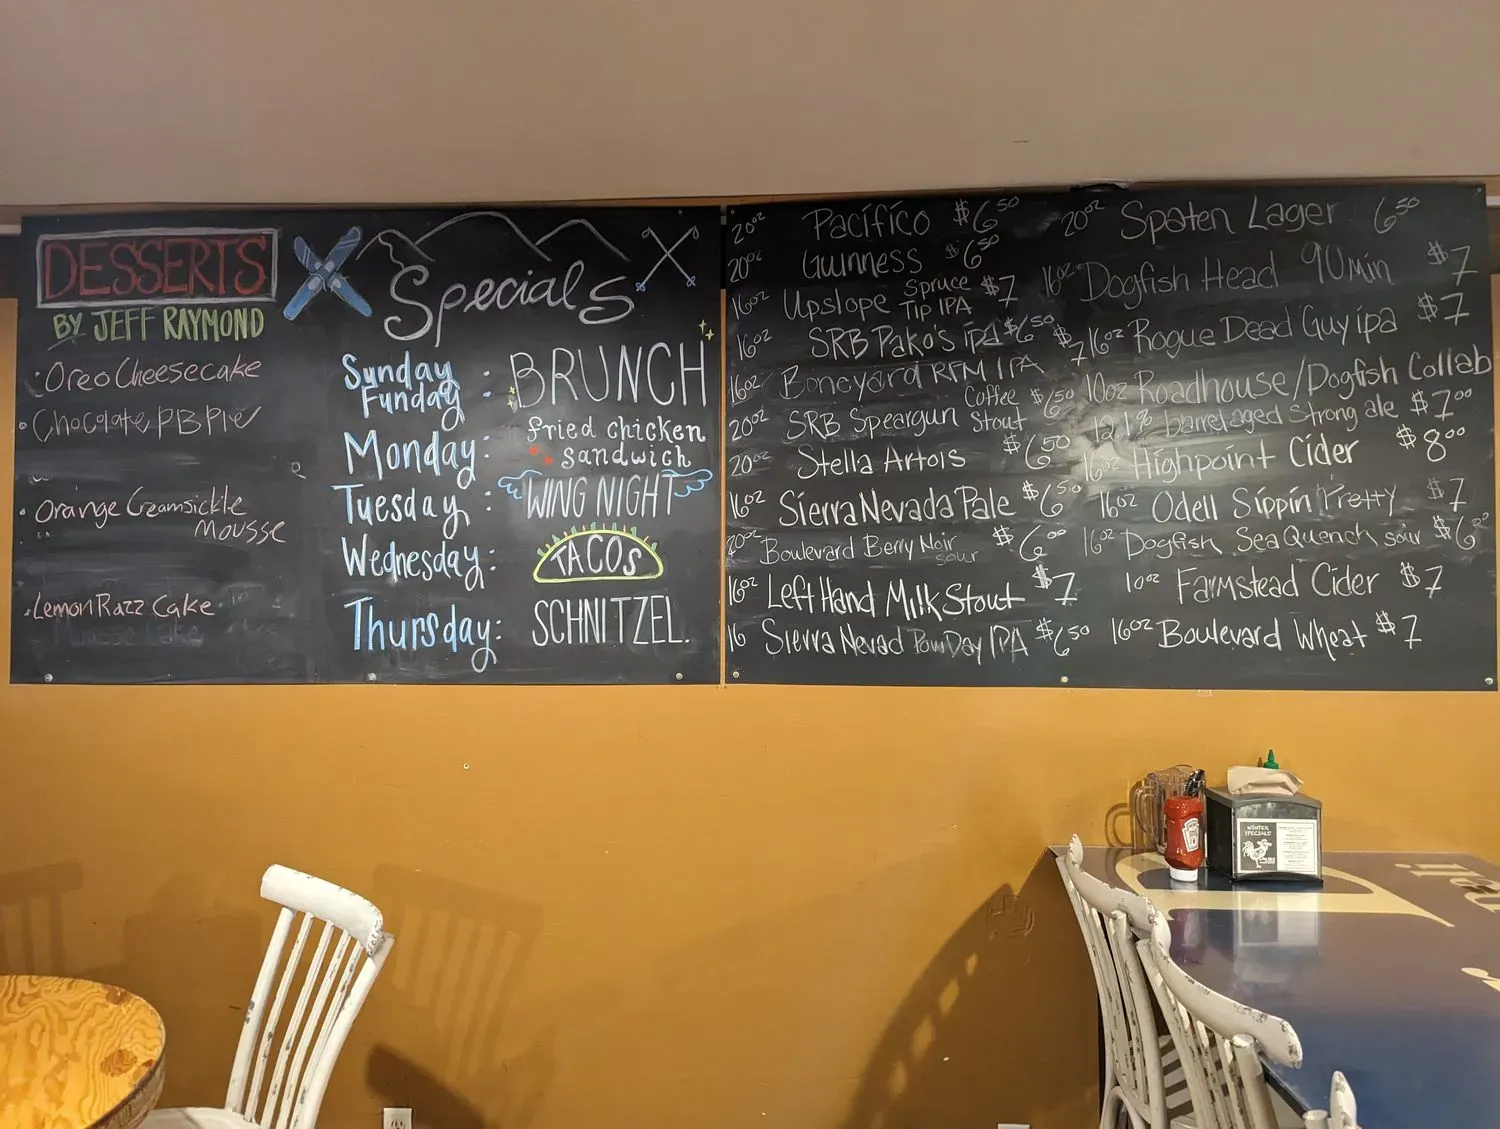 DESSERTS
BY JEFF RAYMOND
Oreo Cheesecake
Chocolate PB Pie
Orange Creamsickle
Mousse
Lemon Razz Cake
Specials
Sunday
Funday : BRUNCH
Monday: fried chicken
sandwich
Tuesday : WING NIGHT
Wednesday: TACOS
Thursday: SCHNITZEL.
20oz Pacífico $6 50
20oz Guinness $6 50
16oz Upslope Spruce
Tip IPA $7
16oz SRB Pako's iPA $6 50
16oz Boneyard RPM IPA $7
20oz SRB Speargun Coffee
Stout $6 50
20oz Stella Artois $6 50
16oz Sierra Nevada Pale $6 50
20oz Boulevard Berry Noir
sour $6 00
16oz Left Hand Milk Stout $7
16 Sierra Nevad PowDay IPA $6 50
20oz Spaten Lager 6 50
16oz Dogfish Head 90min $7
16oz Rogue Dead Guy ipa $7
10oz Roadhouse/Dogfish Collab
12.1% barrel aged Strong ale $7 00
16oz Highpoint Cider $8 00
16oz Odell Sippin Pretty $7
16oz Dogfish SeaQuench sour $6 00
10oz Farmstead Cider $7
16oz Boulevard Wheat $7
WINTER
SPECIALS!